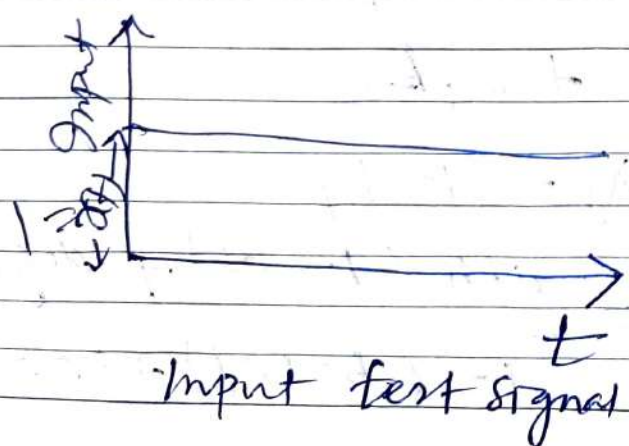 Input
t
Input test signal